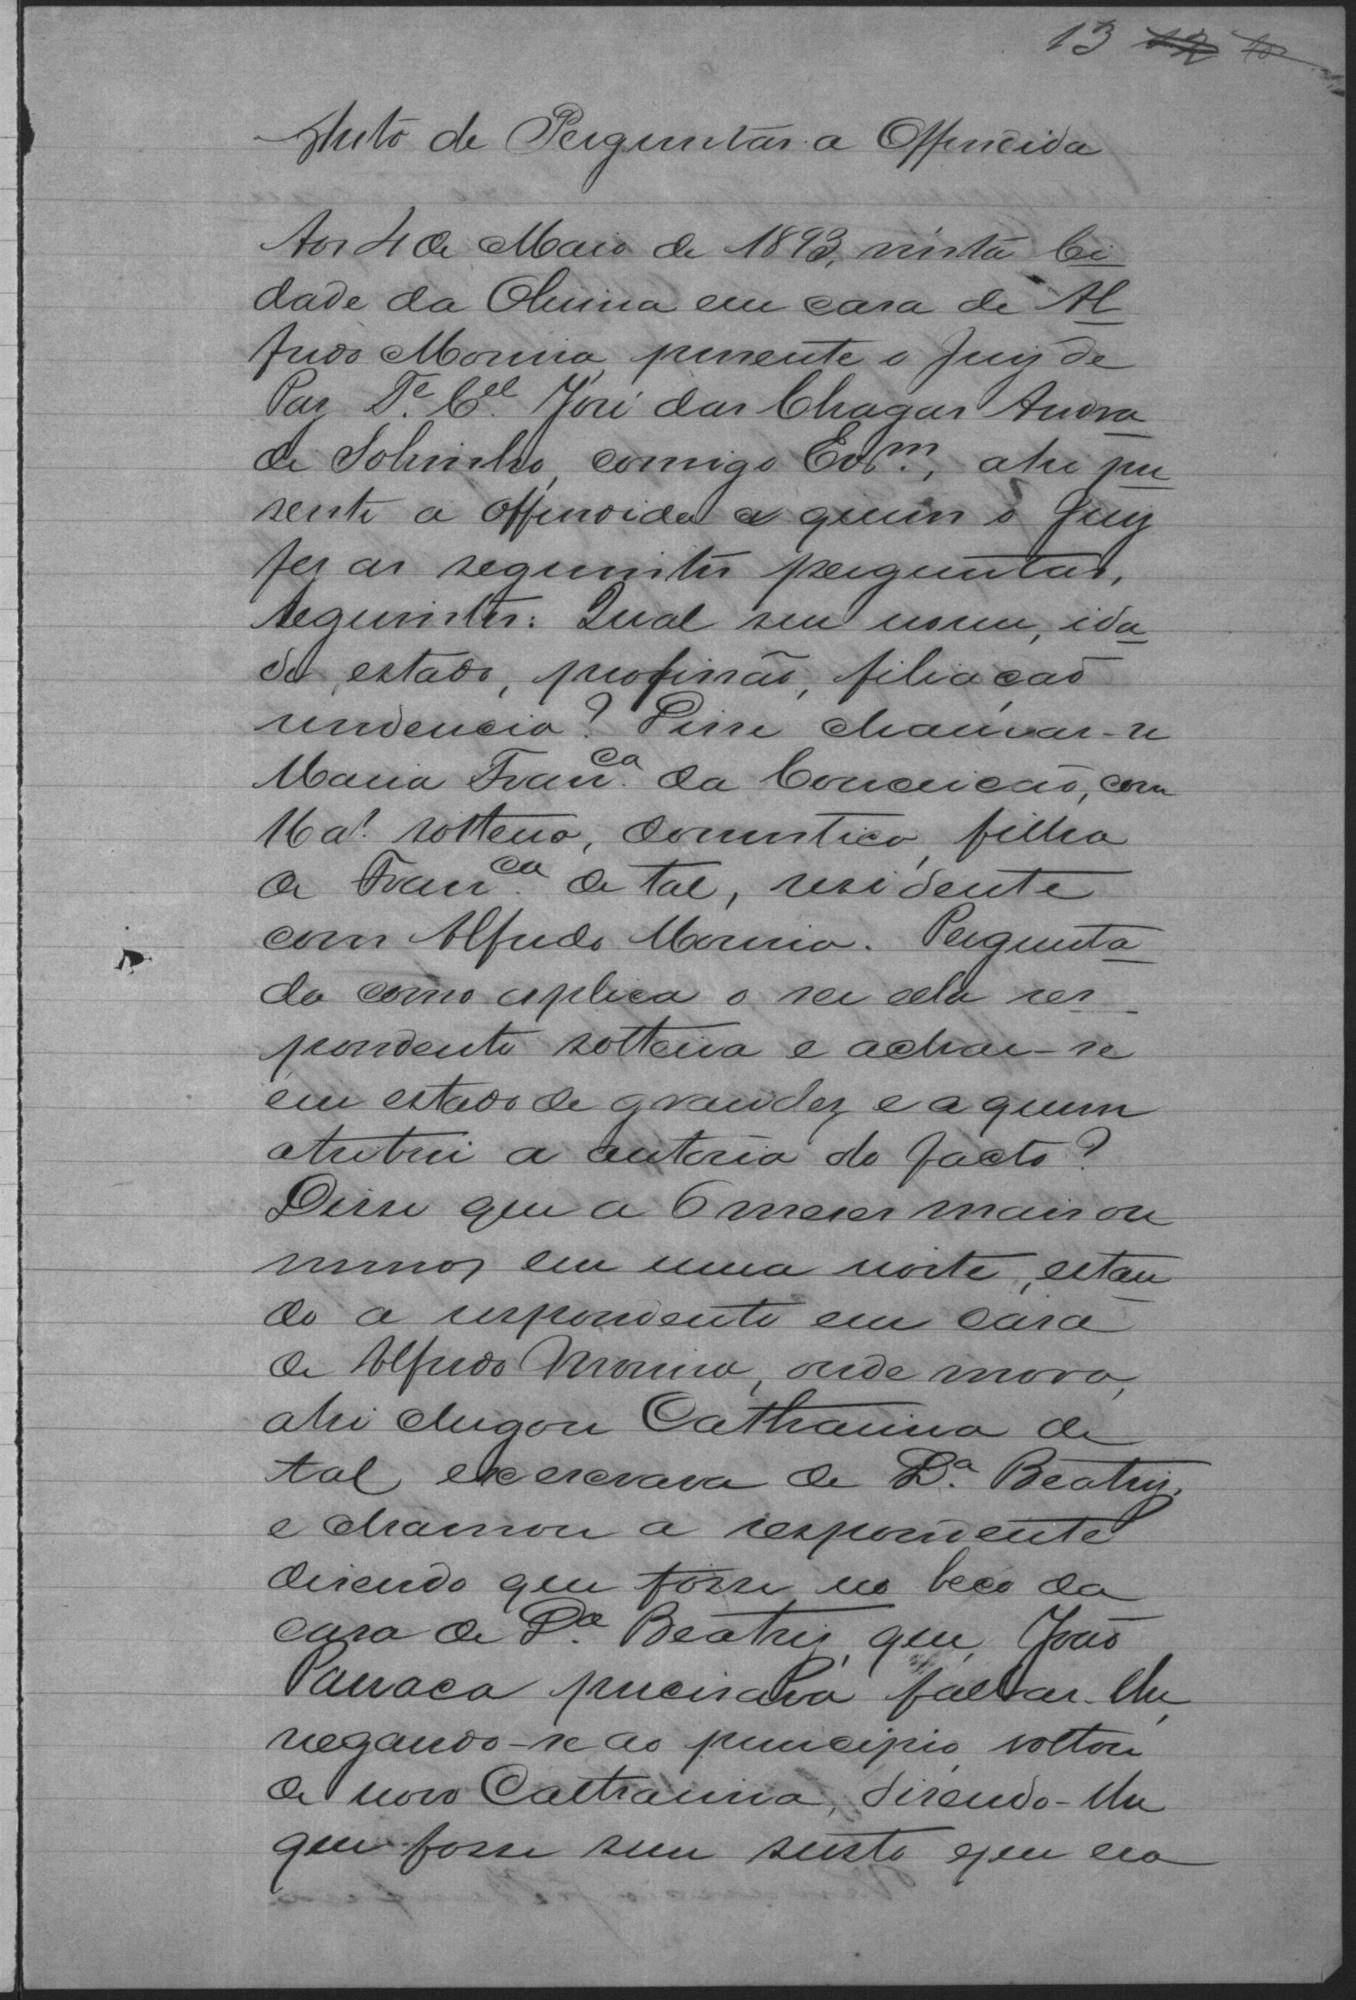 13 12 10
Auto de Perguntas a Offendida
Aos 4 de Maio de 1893, nésta Ci
dade da Oliveira em casa de Al
fredo Moreira, presente o Juiz de
Paz Te. Cel. José das Chagas Andra
de Sobrinho, comigo Escrm., ahi pre
sente a offendida a quem o Juiz
fez as seguintes perguntas,
seguintes: Qual seu nome, ida
de, estado, profissão, filiação
residencia? Disse chamar-se
Maria Franca. da Conceicão, com
16 as. solteira, domestica, filha
de Franca. de tal, residente
com Alfredo Moreira. Pergunta
da como esplica o ser ela res
pondente solteira e achar-se
em estado de gravidez e a quem
atribui a autoria do facto?
Disse que a 6 meses mais ou
menos em uma noite, estan
do a respondente em casa
de Alfredo Moreira, onde mora,
ahi chegou Catharina de
tal ex escrava de Da. Beatriz,
e chamou a respondente
disendo que fosse no beco da
casa de Da. Beatriz, que João
Parraca precisava fallar-lhe,
negando-se ao principio, voltou
de novo Catharina, disendo-lhe
que fosse sem susto que era